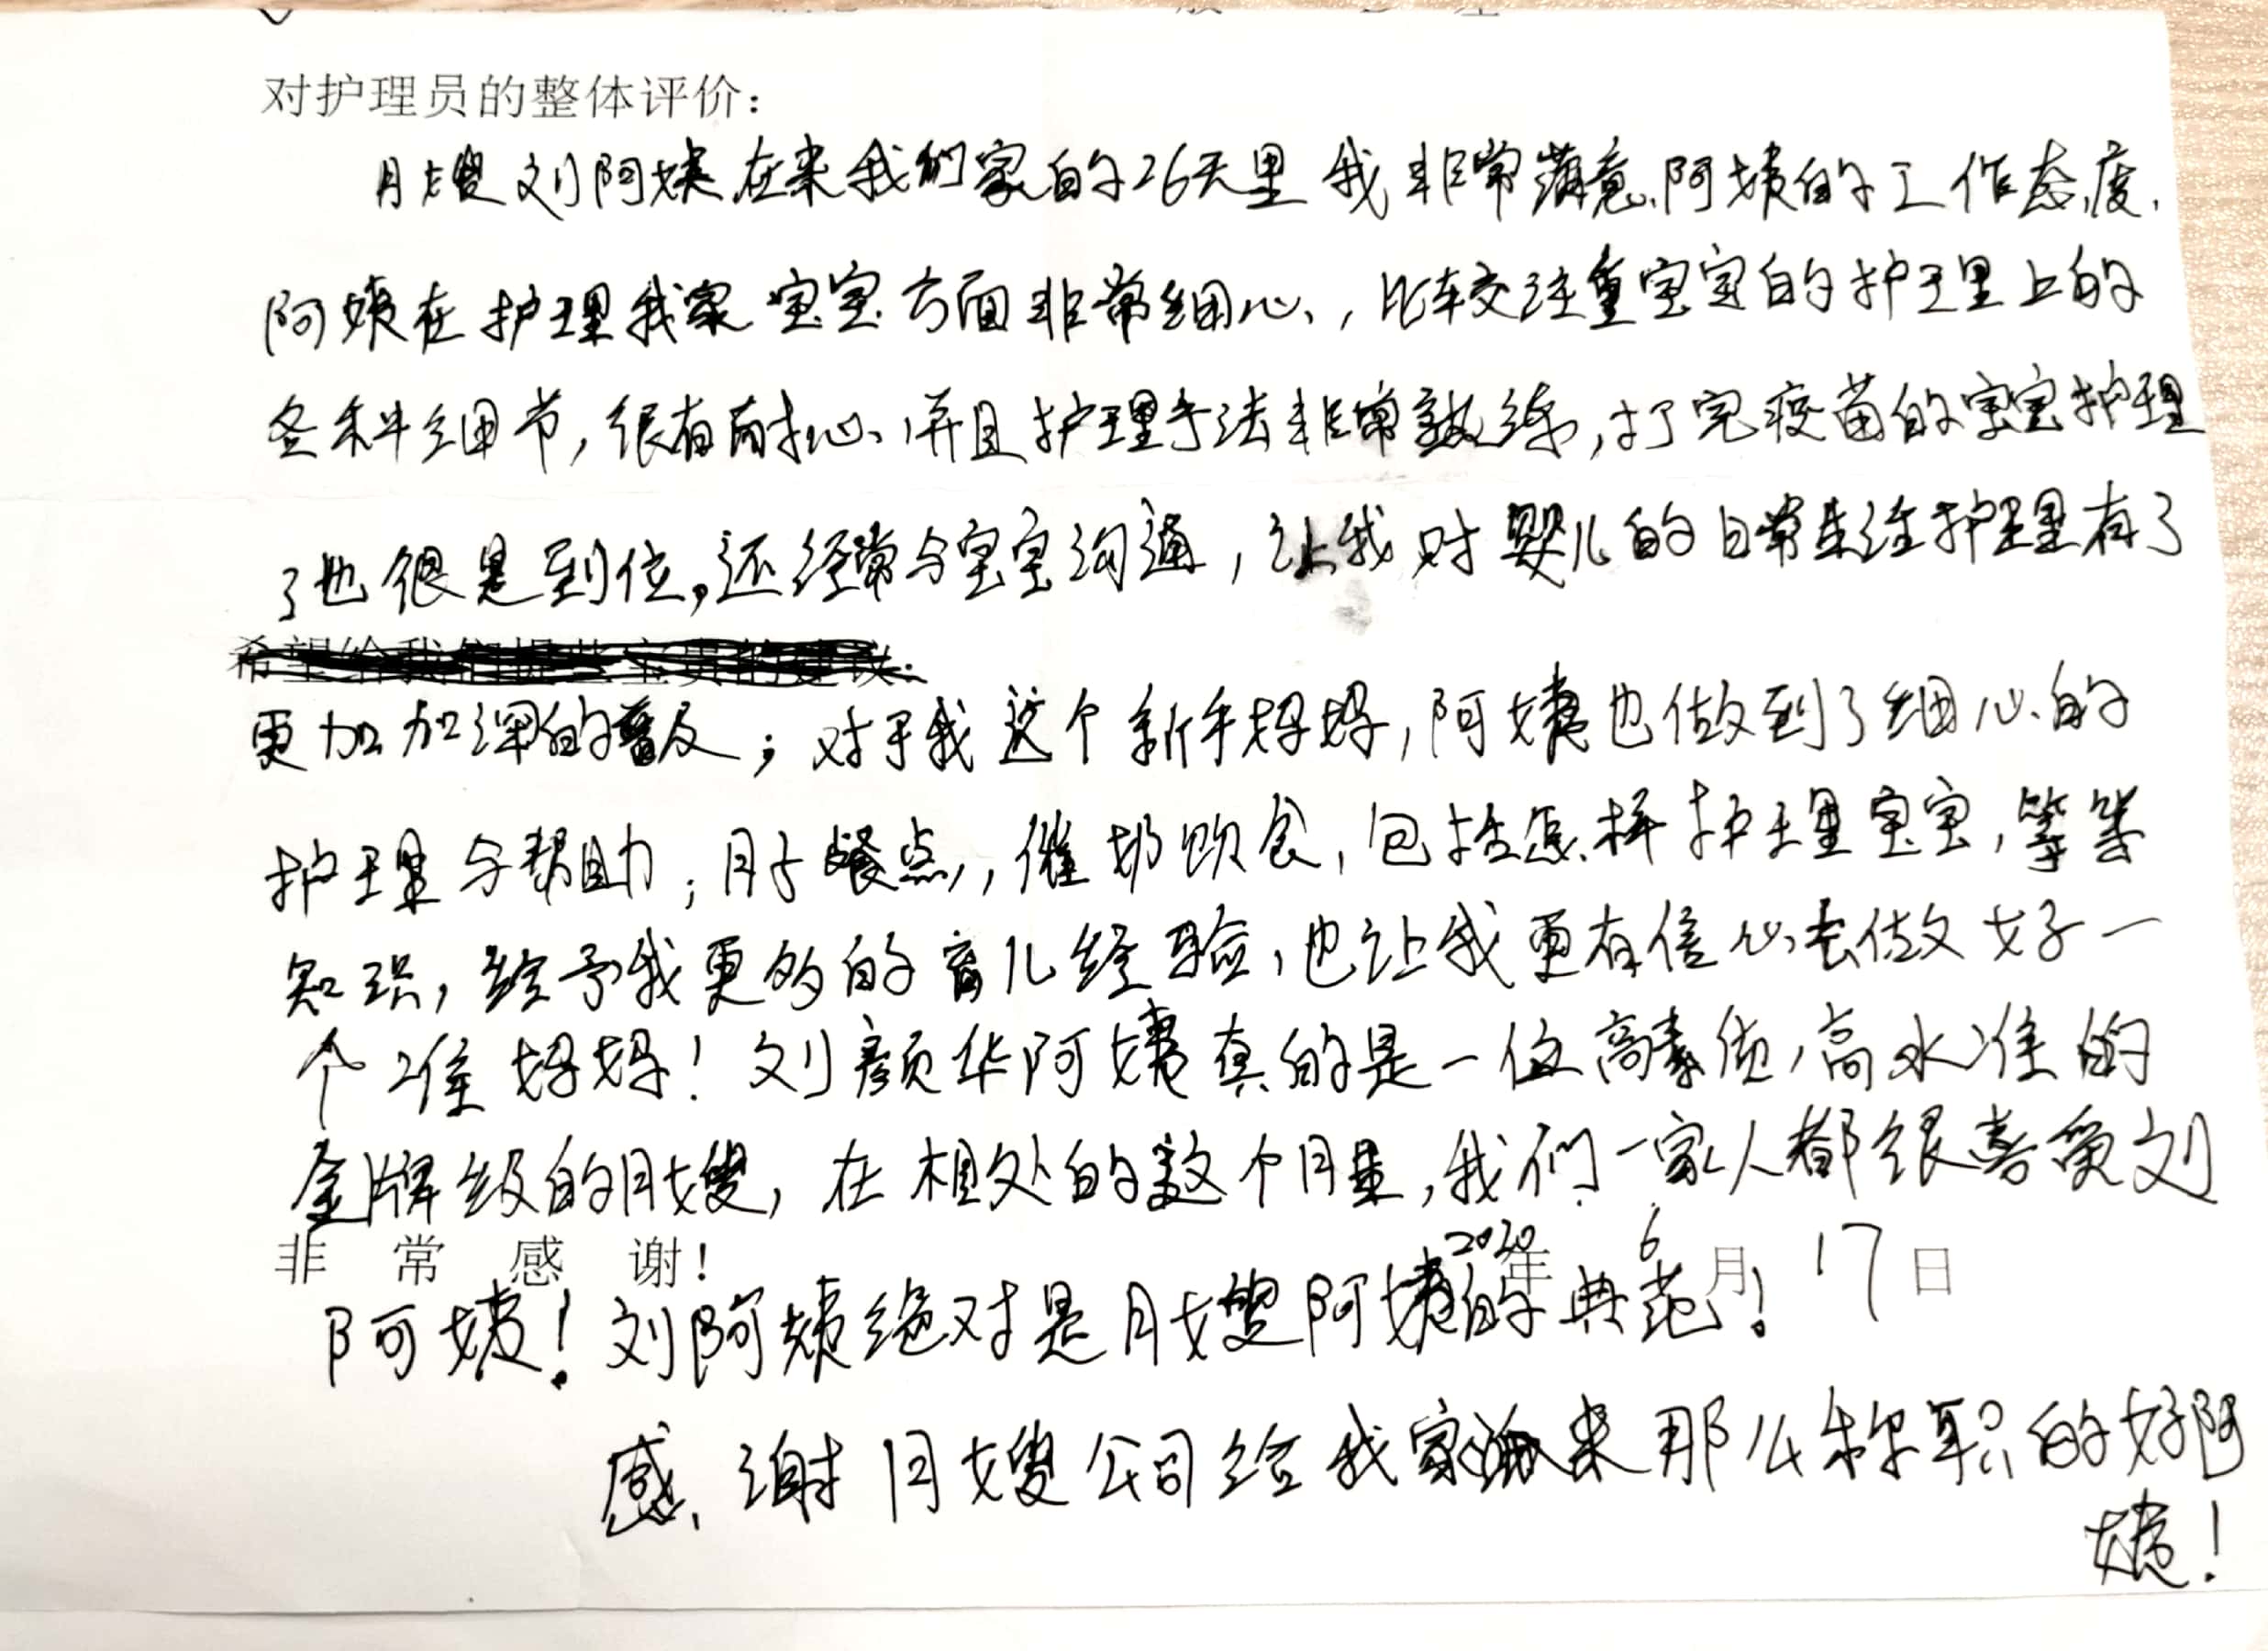 对护理员的整体评价：
月嫂刘阿姨在来我们家的26天里我非常满意阿姨的工作态度.
阿姨在护理我家宝宝方面非常细心，比较注重宝宝的护理上的
各种细节,很有耐心、并且护理手法非常熟练,打完疫苗的宝宝护理
了也很是到位,还经常与宝宝沟通,让我对婴儿的日常生活护理有了
更加加深的普及；对于我这个新手妈妈,阿姨也做到了细心的
护理与帮助；月子餐点,催奶饮食,包括怎样护理宝宝,等等
知识,给予我更多的育儿经验,也让我更有信心去做好一
个准妈妈！刘颜华阿姨真的是一位高素质,高水准的
金牌级的月嫂,在相处的这个月里,我们一家人都很喜爱刘
非常感谢！ 2020年6月17日
阿姨！刘阿姨绝对是月嫂阿姨的典范！
感谢月嫂公司给我家来那么称职的好阿
姨！